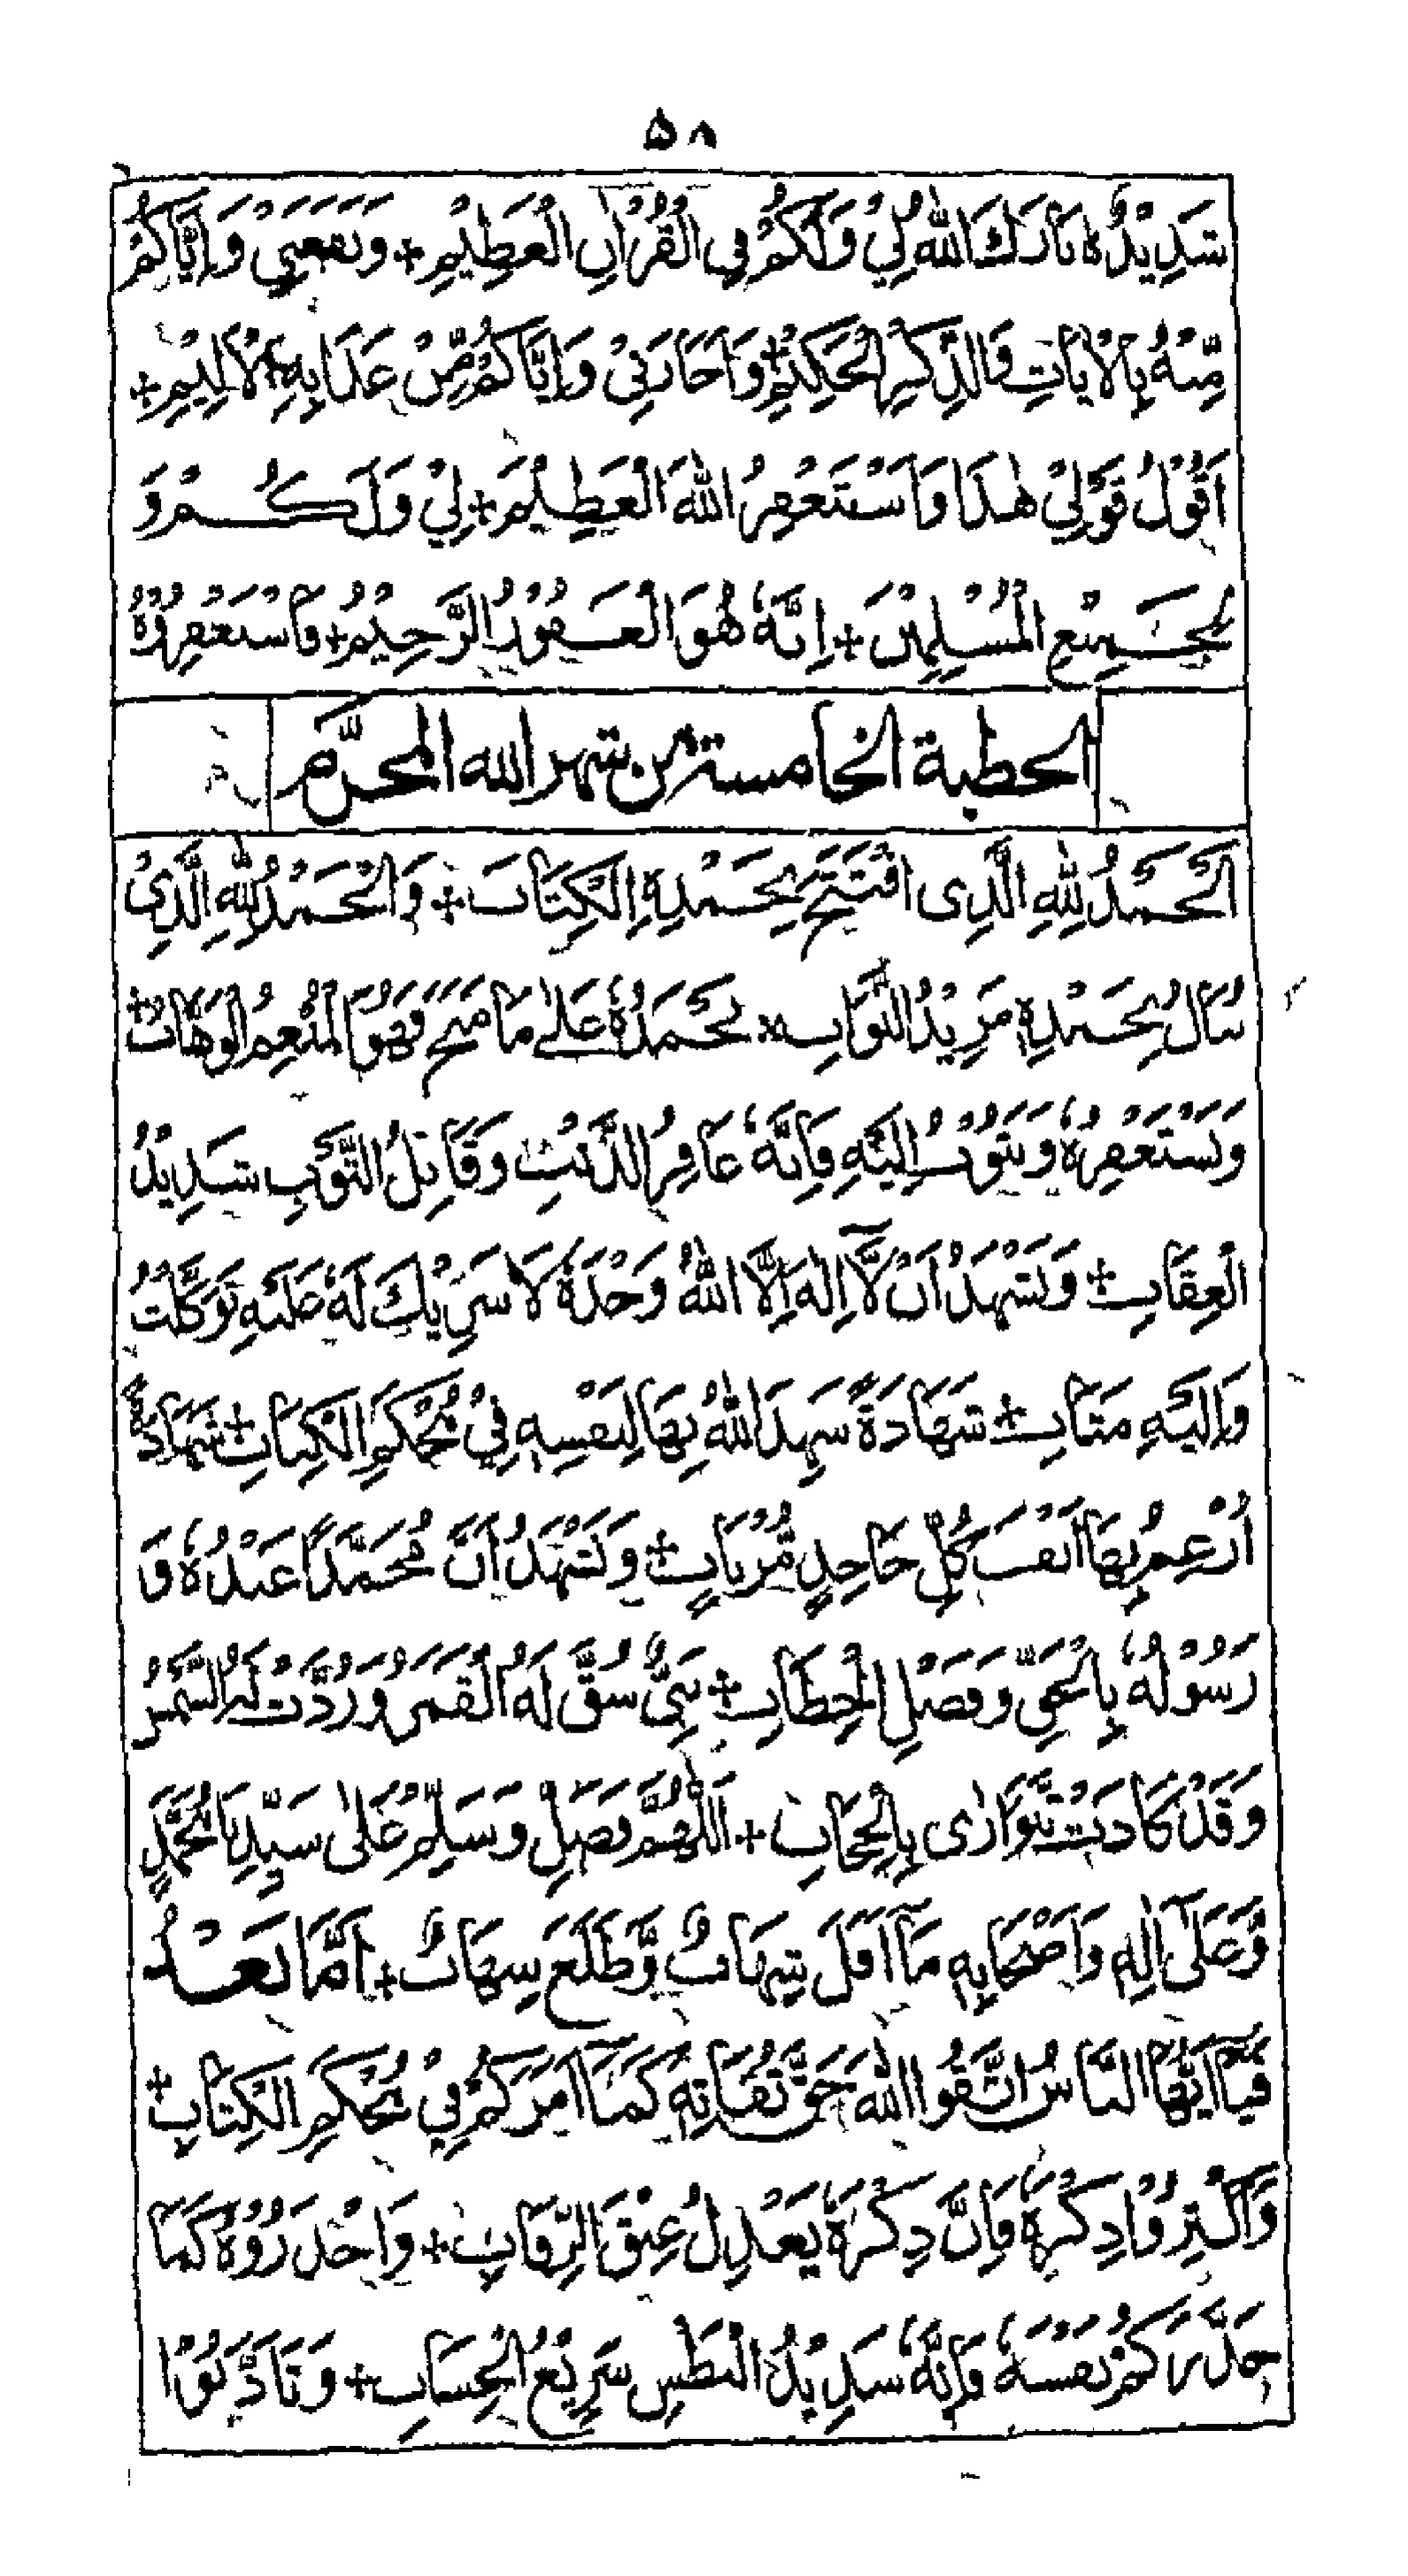 ٥٨
شَدِيْدٌ ۞ بَارَكَ اللهُ لِيْ وَلَكُمْ فِي الْقُرْاٰنِ الْعَظِيْمِ + وَنَفَعَنِيْ وَاِيَّاكُمْ
مِّنْهُ بِالْاٰيَاتِ وَالذِّكْرِ الْحَكِيْمِ + وَاَجَارَنِيْ وَاِيَّاكُمْ مِّنْ عَذَابِهِ الْاَلِيْمِ +
اَقُوْلُ قَوْلِيْ هٰذَا وَاَسْتَغْفِرُ اللهَ الْعَظِيْمَ + لِيْ وَلَكُمْ وَ
لِجَمِيْعِ الْمُسْلِمِيْنَ + اِنَّهٗ هُوَ الْغَفُوْرُ الرَّحِيْمُ + فَاسْتَغْفِرُوْهُ
الخطبة الخامسة من شهر الله المحرَّم
اَلْحَمْدُ لِلّٰهِ الَّذِى افْتَتَحَ بِحَمْدِهِ الْكِتَابَ + وَالْحَمْدُ لِلّٰهِ الَّذِيْ
يُنَالُ بِحَمْدِهٖ مَزِيْدُ الثَّوَابِ + نَحْمَدُهٗ عَلٰى مَا مَنَحَ فَهُوَ الْمُنْعِمُ الْوَهَّابُ +
وَنَسْتَغْفِرُهٗ وَنَتُوْبُ اِلَيْهِ فَاِنَّهٗ غَافِرُ الذَّنْبِ وَقَابِلُ التَّوْبِ شَدِيْدُ
الْعِقَابِ + وَنَشْهَدُ اَنْ لَّا اِلٰهَ اِلَّا اللهُ وَحْدَهٗ لَا شَرِيْكَ لَهٗ عَلَيْهِ تَوَكَّلْتُ
وَاِلَيْهِ مَتَابِ + شَهَادَةً شَهِدَ اللهُ بِهَا لِنَفْسِهٖ فِيْ مُحْكَمِ الْكِتَابِ + شَهَادَةً
اُرْغِمُ بِهَا اَنْفَ كُلِّ جَاحِدٍ مُّرْتَابٍ + وَنَشْهَدُ اَنَّ مُحَمَّدًا عَبْدُهٗ وَ
رَسُوْلُهٗ بِالْحَقِّ وَفَصْلِ الْخِطَابِ + نَبِيٌّ شُقَّ لَهُ الْقَمَرُ وَرُدَّتْ لَهُ الشَّمْسُ
وَقَدْ كَادَتْ تَتَوَارٰى بِالْحِجَابِ + اَللّٰهُمَّ فَصَلِّ وَسَلِّمْ عَلٰى سَيِّدِنَا مُحَمَّدٍ
وَّعَلٰى اٰلِهٖ وَاَصْحَابِهٖ مَا اَفَلَ شِهَابٌ وَّطَلَعَ شِهَابٌ + اَمَّا بَعْدُ
فَيَا اَيُّهَا النَّاسُ اتَّقُوا اللهَ حَقَّ تُقَاتِهٖ كَمَا اَمَرَكُمْ فِيْ مُحْكَمِ الْكِتَابِ +
وَاَكْثِرُوْا ذِكْرَهٗ فَاِنَّ ذِكْرَهٗ يَعْدِلُ عِتْقَ الرِّقَابِ + وَاحْذَرُوْهُ كَمَا
حَذَّرَكُمْ نَفْسَهٗ فَاِنَّهٗ شَدِيْدُ الْبَطْشِ سَرِيْعُ الْحِسَابِ + وَتَاَدَّبُوْا